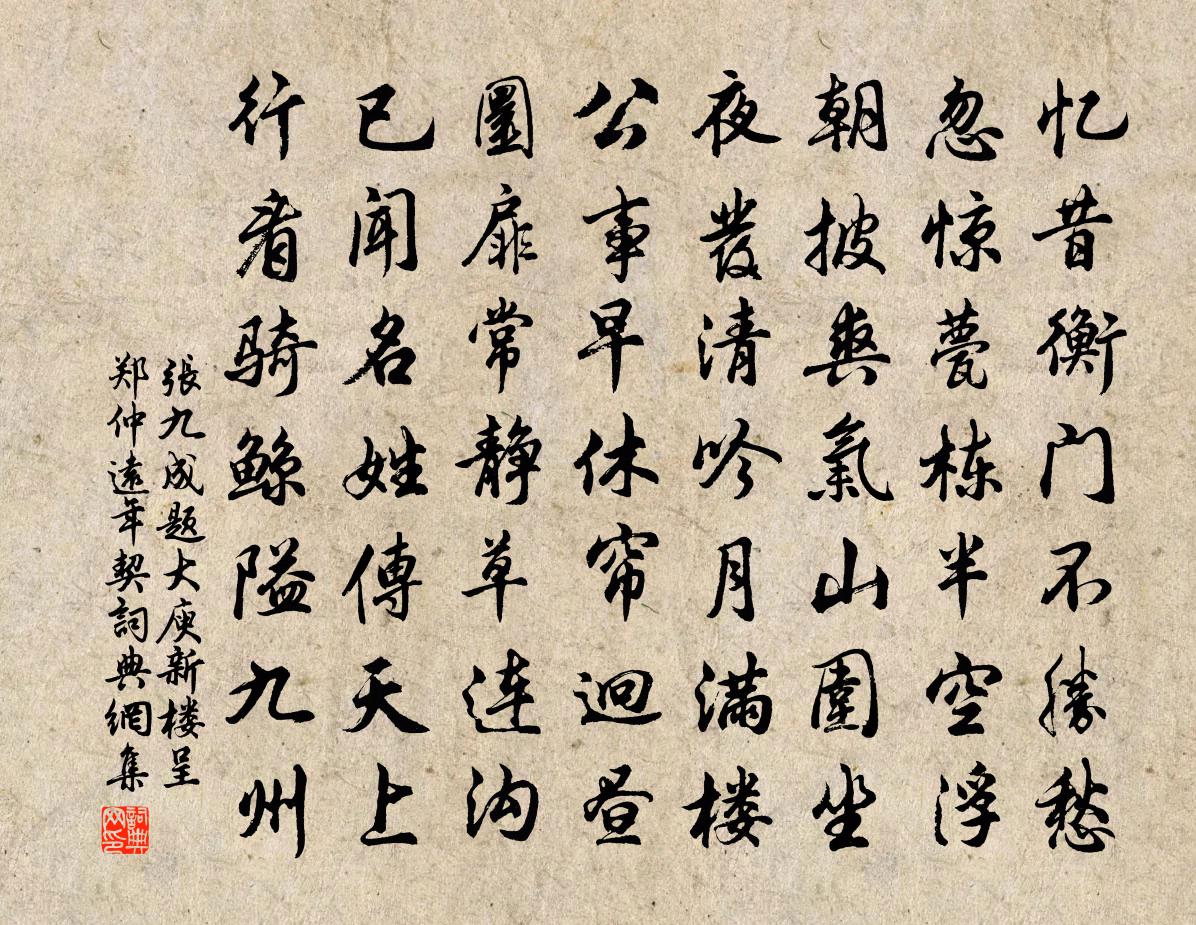 忆昔衡门不胜愁
忽惊甍栋半空浮
朝披爽氣山圍坐
夜發清吟月满楼
公事早休帘迥昼
圜扉常静草连沟
已闻名姓傳天上
行看骑鲸隘九州
張九成题大庾新楼呈
郑仲遠年契詞典網集
詞典
网印